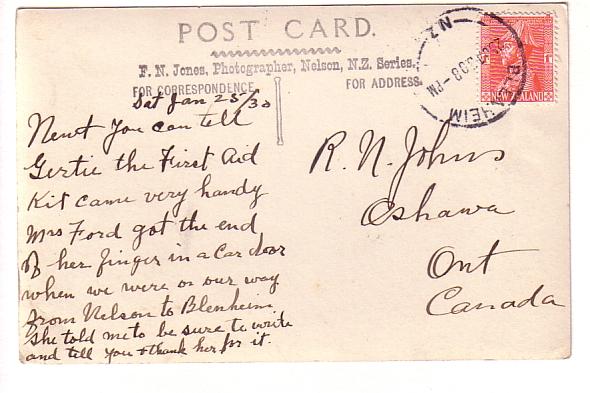 POST CARD.
F. N. Jones, Photographer, Nelson, N.Z. Series.
FOR CORRESPONDENCE
FOR ADDRESS
NEW ZEALAND
BLENHEIM
N.Z.
Sat Jan 25/30
Newt You can tell
Gertie the First Aid
Kit came very handy
Mrs Ford got the end
of her finger in a Car door
when we were on our way
from Nelson to Blenheim
she told me to be sure to write
and tell you & thank her for it.
R. N. Johns
Oshawa
Ont
Canada